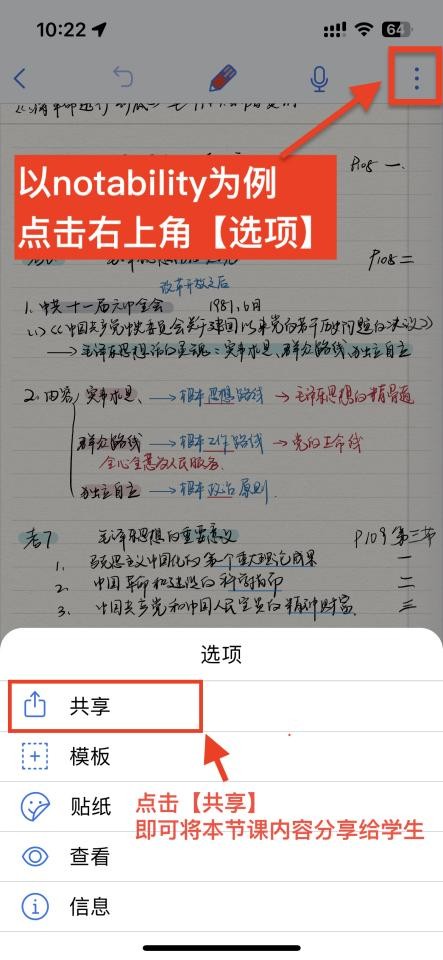 10:22
64
P108 一.
以notability为例
点击右上角【选项】
P108 二
改革开放之后
1. 中共十一届六中全会 1981.6月
(1)《中国共产党中央委员会关于建国以来党的若干历史问题的决议》
→ 毛泽东思想活的灵魂:实事求是、群众路线、独立自主
2. 内容 实事求是、→ 根本思想路线 → 毛泽东思想的精髓
群众路线 → 根本工作路线 → 党的生命线
全心全意为人民服务.
独立自主 → 根本政治原则.
考7 毛泽东思想的重要意义 P109 第三节
1. 马克思主义中国化的第一个重大理论成果 一
2. 中国革命和建设的科学指南 二
3. 中国共产党和中国人民宝贵的精神财富. 三
选项
共享
模板
贴纸
点击【共享】
即可将本节课内容分享给学生
查看
信息